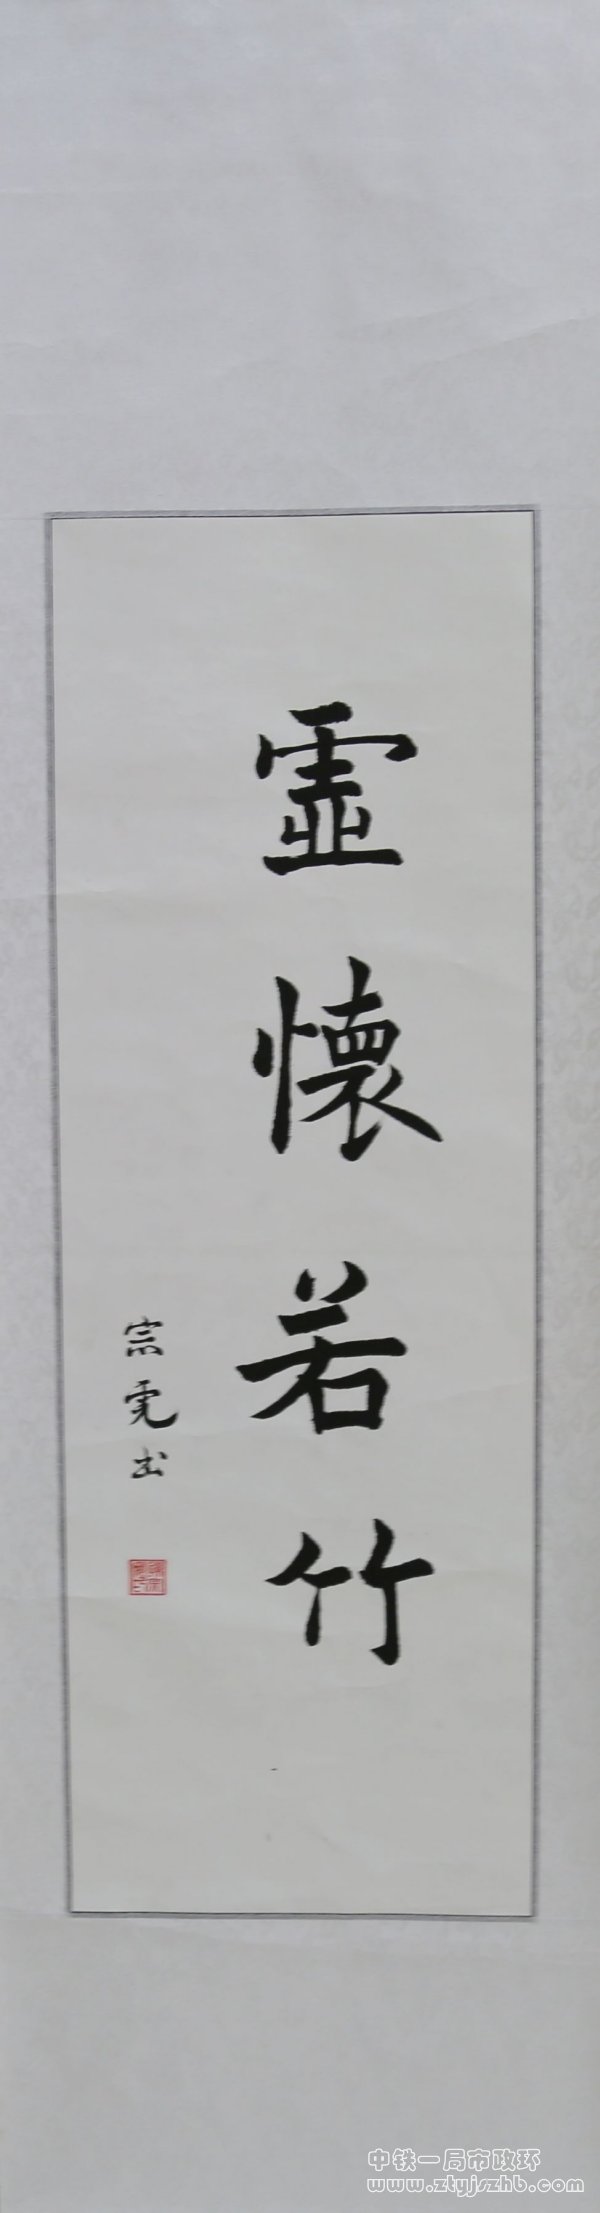 虛懷若竹
宗虎书
中铁一局市政环
www.ztyjszhb.com